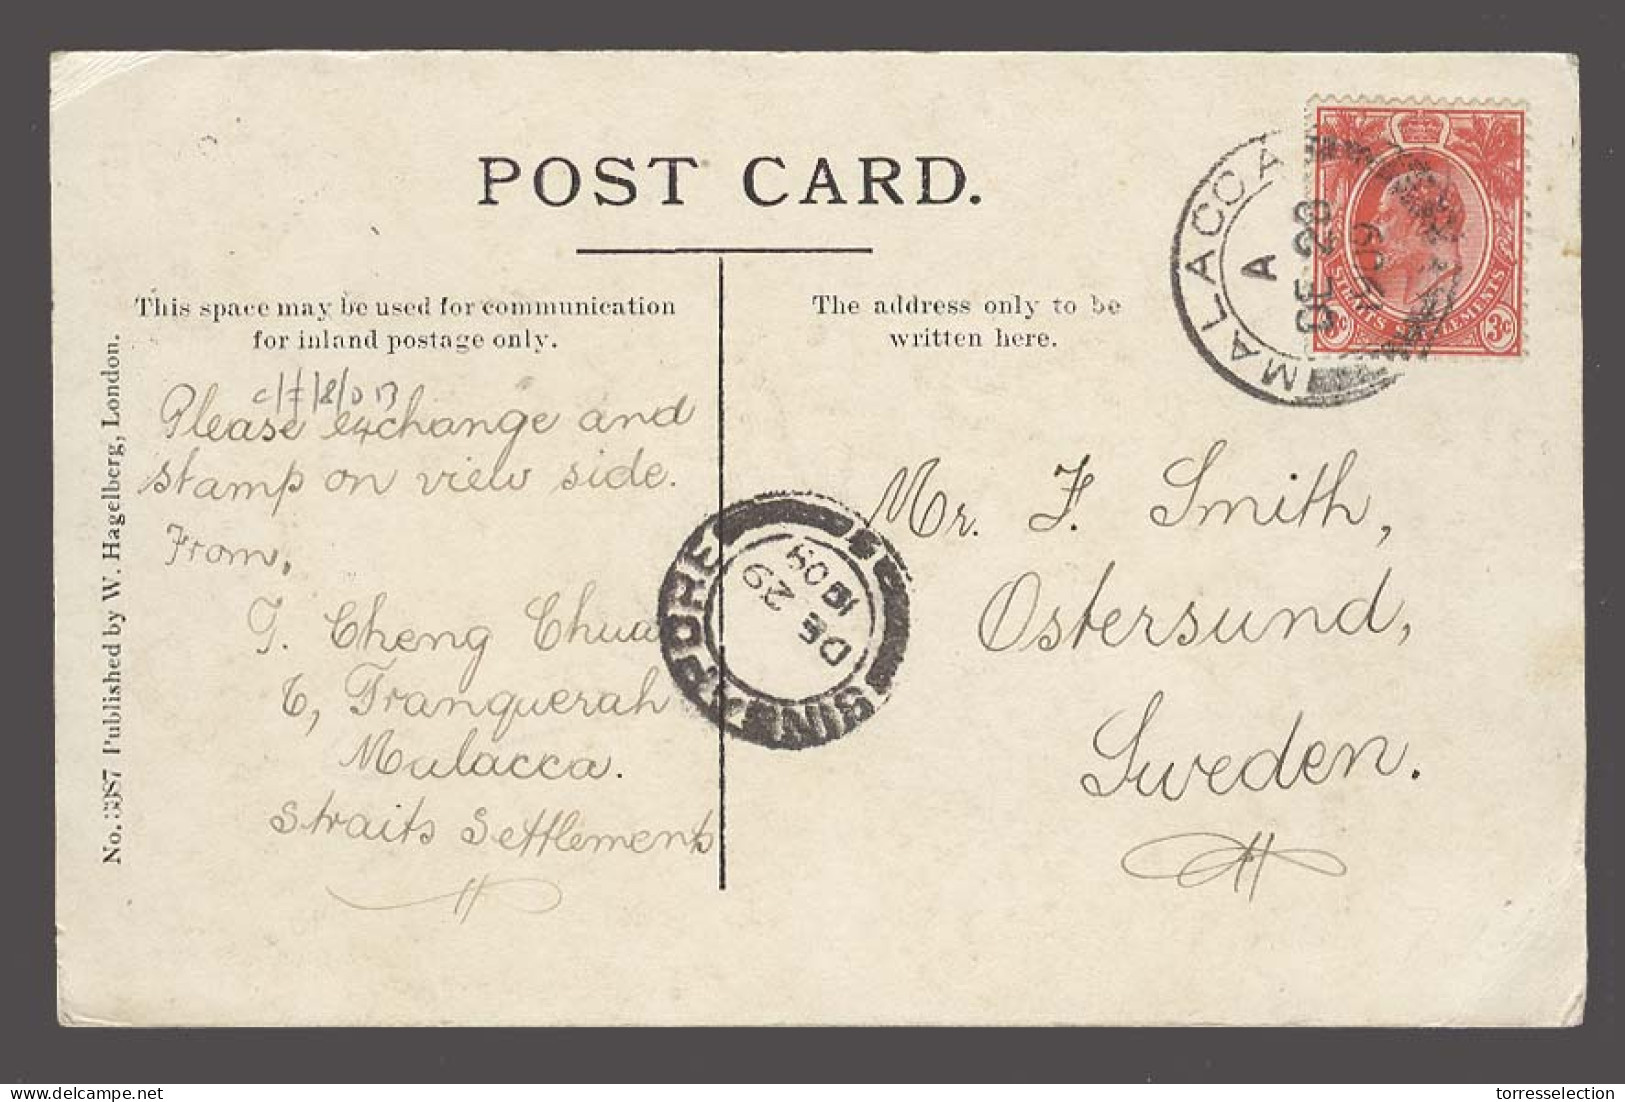 POST CARD.
This space may be used for communication
for inland postage only.
The address only to be
written here.
No. 3387 Published by W. Hagelberg, London.
Please exchange and
stamp on view side.
From,
T. Cheng Chua
6, Tranquerah
Malacca.
Straits Settlements
Mr. F. Smith,
Ostersund,
Sweden.
MALACCA
A
DE 28
09
STRAITS SETTLEMENTS
3c
3c
SINGAPORE
DE 29
1909
torresselection